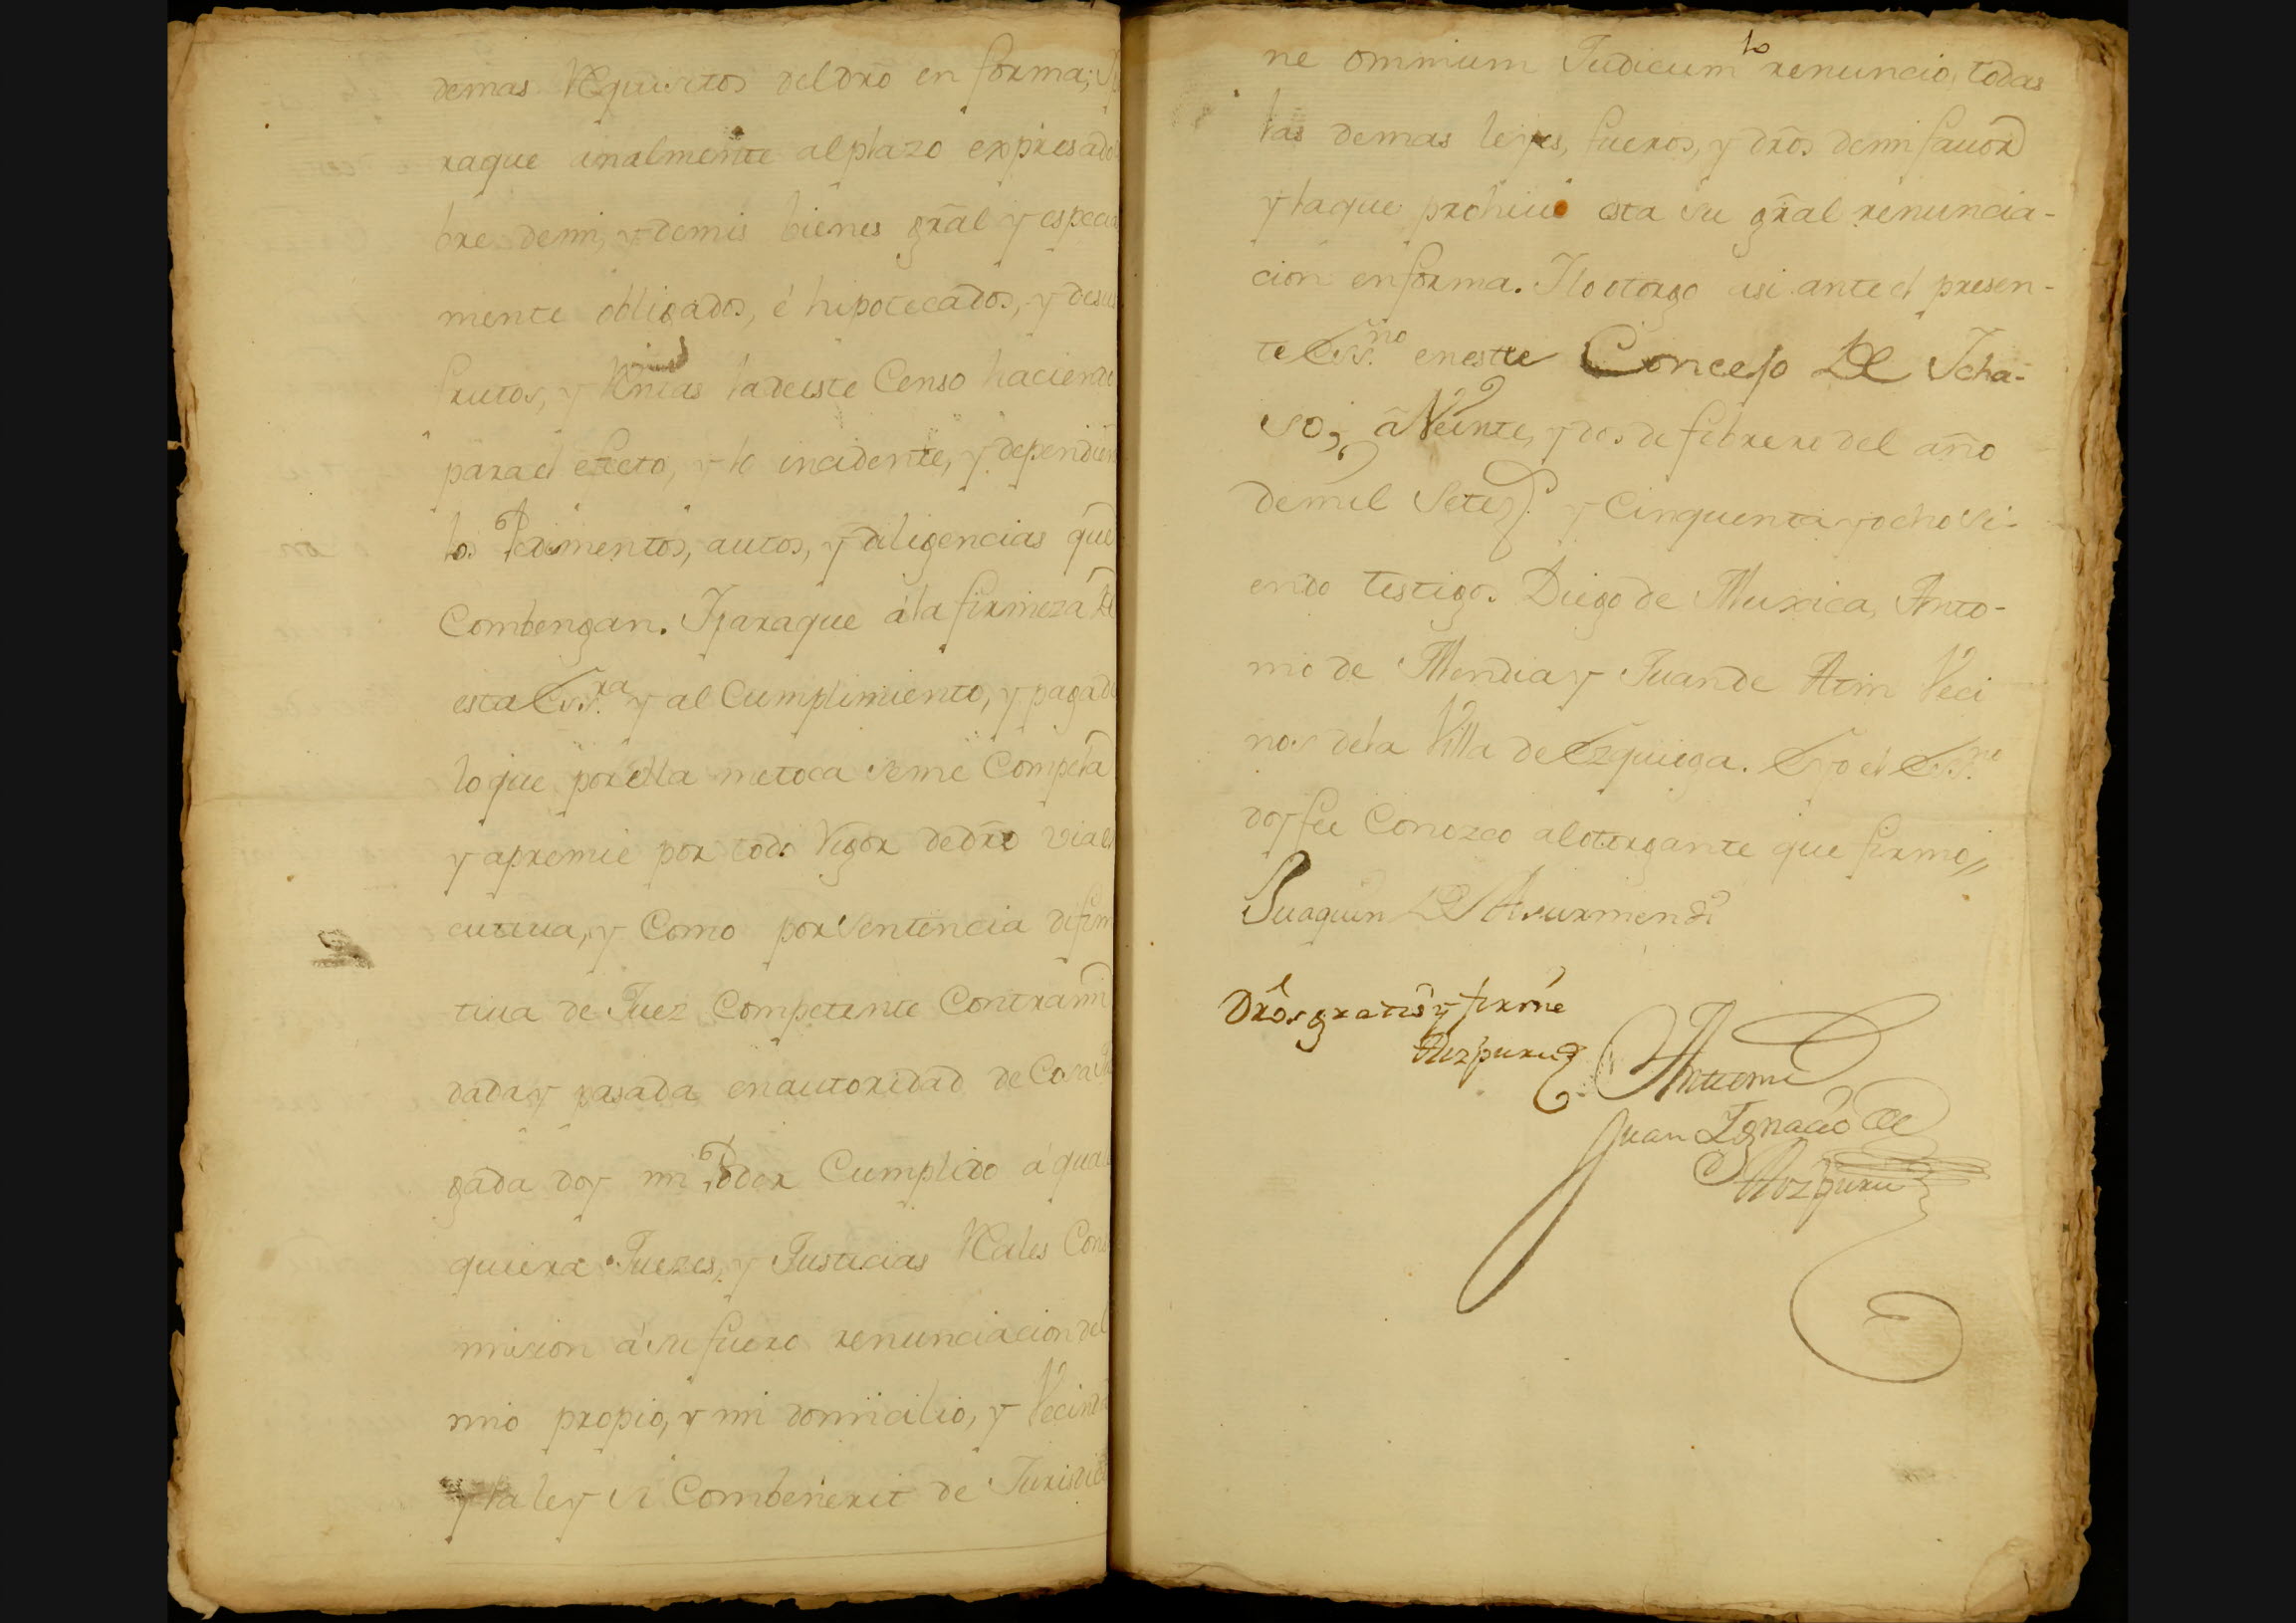 demas Requisitos del dro en forma; Y
raque anualmente al plazo expresado
bre de mi, y de mis bienes gral y especial
mente obligados, é hipotecados, y desus
frutos, y Rentas la de iste Censo haciendo
para el efecto, y lo incidente, y dependien
los Pedimentos, autos, y diligencias que
Combengan. Y para que á la firmeza de
esta Ess.ra y al Cumplimiento, y paga de
lo que por ella me toca seme Compela
y apremie por todo Rigor de dro via e
cutiua, y Como por Sentencia difini
tiua de Juez Competente Contra mi
dada y pasada en autoridad de Cosa
gada doy mi Poder Cumplido á qual
quiera Juezes, y Justicias Reales Con
mision á su fuero renunciacion del
mio propio, y mi domicilio, y Vecind
y la ley si Combenerit de Jurisdic
ne omnium Judicum lo renuncio, todas
las demas leyes, fueros, y dros de mi fauor
y la que prohiue esta su gral renuncia-
cion en forma. Y lo otorgo asi ante el presen-
te Ess.no en este Concejo De Ycha-
so; á Veinte, y dos de febrero del año
de mil Setez.s y Cinquenta y ocho si-
endo testigos Diego de Muxica, Anto-
nio de Mendia y Juan de Atin Veci
nos de la Villa de Ezquioga. E yo el Ess.no
doy fee Conozco al otorgante que firmo,,
Juaquin De Asurmendi
Dros gratis y firme
Aizpuru
Antemi
Juan Ignacio de
Aizpuru